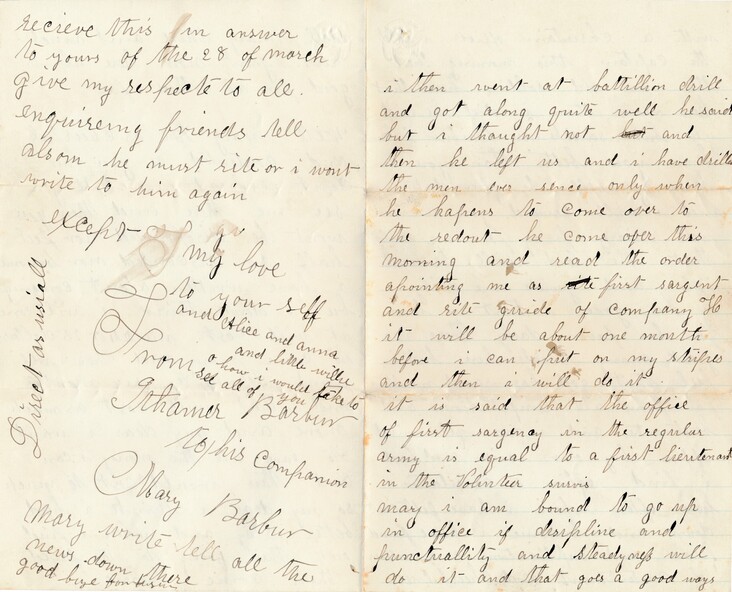 recieve this in answer
to yours of the 28 of march
give my respects to all
enquireing friends tell
he must rite or i wont
write to him again
except
my love
to your self
and Alice and anna
and little willie
o how i would like to
see all of you
From
Barbur
to his Companion
Mary Barbur
Mary write tell all the
news down there
good buye
Direct as usiall
i then went at battillion drill
and got along quite well he said
but i thought not but and
then he left us and i have drilled
the men ever sence only when
he hapens to come over to
the redout he come over this
morning and read the order
apointing me as rite first sargent
and rite guide of company H
it will be about one month
before i can put on my stripes
and then i will do it
it is said that the office
of first sargency in the regular
army is equal to a first lieutenant
in the Volunteer survis
mary i am bound to go up
in office if disipline and
punctuallity and steadyness will
do it and that goes a good ways